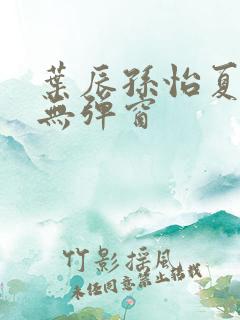 葉辰孫怡夏
無彈窗
竹影摇風
未经同意禁止转载